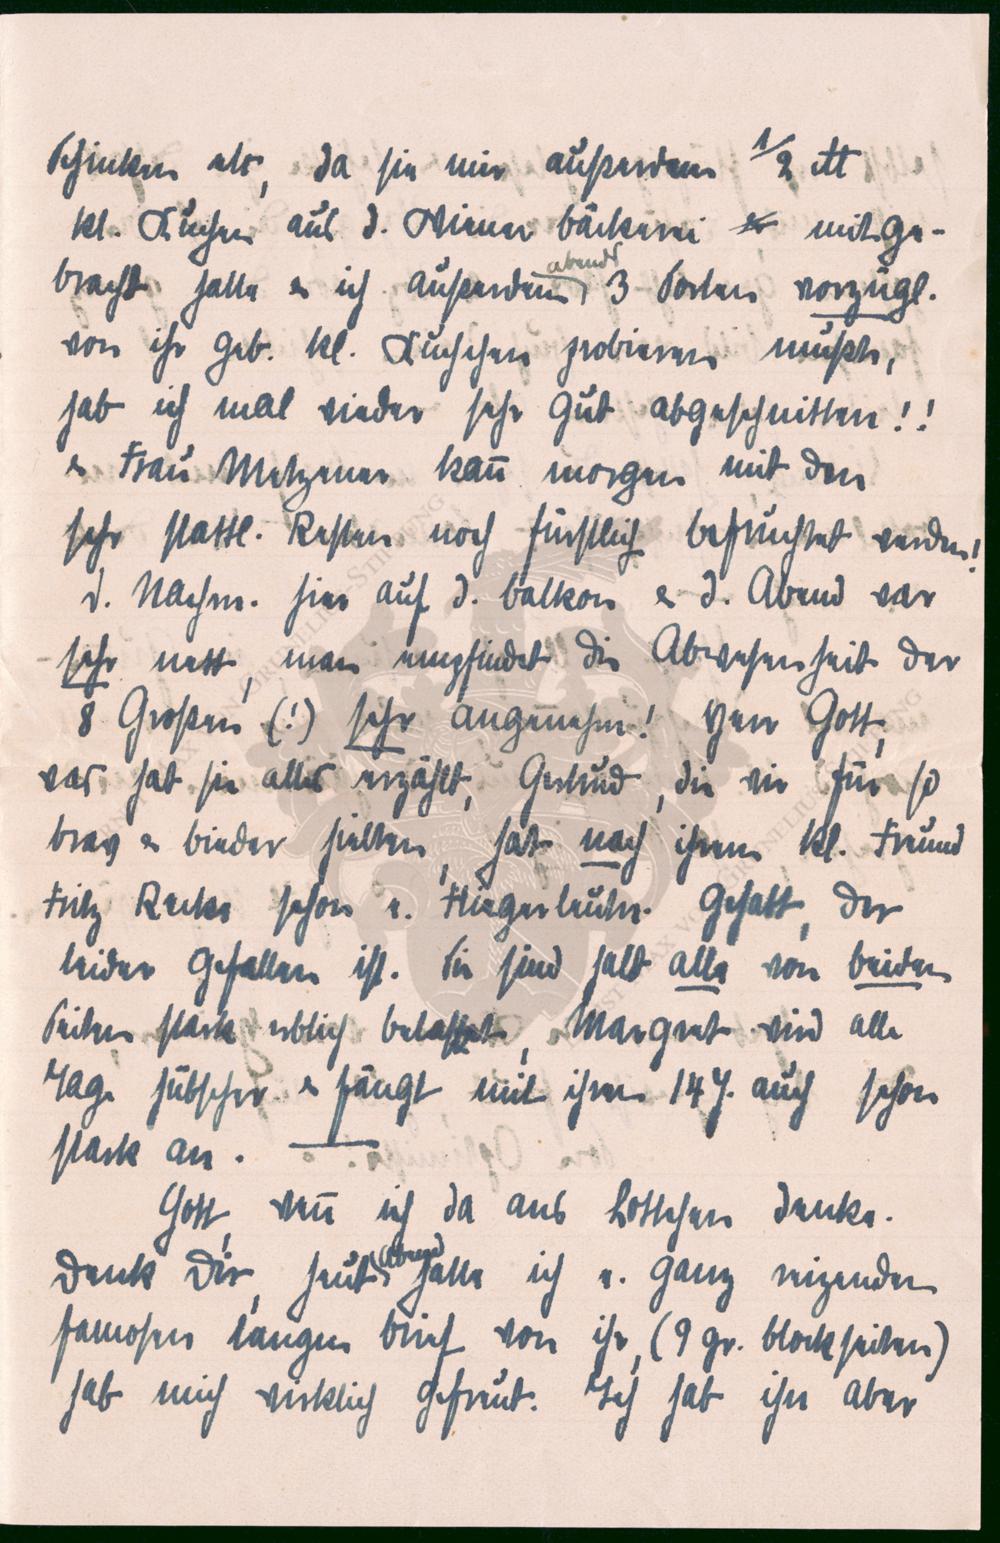 Schinken etc, da sie mir außerdem 1/2 ℔
kl. Kuchen aus d. Wiener bäckerei mitge-
bracht hatte & ich außerdem abends 3 Sorten vorzügl.
von ihr geb. kl. Kuchchen probieren mußte,
hab ich mal wieder sehr gut abgeschnitten!!
& Frau Metzener kan̄ morgen mit den
sehr stattl. Resten noch fürstlich befruchtet werden!
d. Nachm. hier auf d. balkon & d. Abend war
sehr nett, man empfindet die Abwesenheit der
8 Großen (!) sehr angenehm! Herr Gott,
was hat sie alles erzählt, Gertrud, die wir für so
brav & bieder hielten, hat nach ihrem kl. Freund
Fritz Recke schon e. Fliegerleutn. gehabt, der
leider gefallen ist. Sie sind halt alle von beiden
Seiten stark erblich belastet, Margret wird alle
Tage hübscher & fängt mit ihren 14 J. auch schon
stark an.
Gott, wen̄ ich da ans Lottchen denke.
Denk Dir, heut Abend hatte ich e. ganz reizenden
famosen langen brief von ihr, (9 gr. blockseiten)
hab mich wirklich gefreut. Ich hab ihn aber